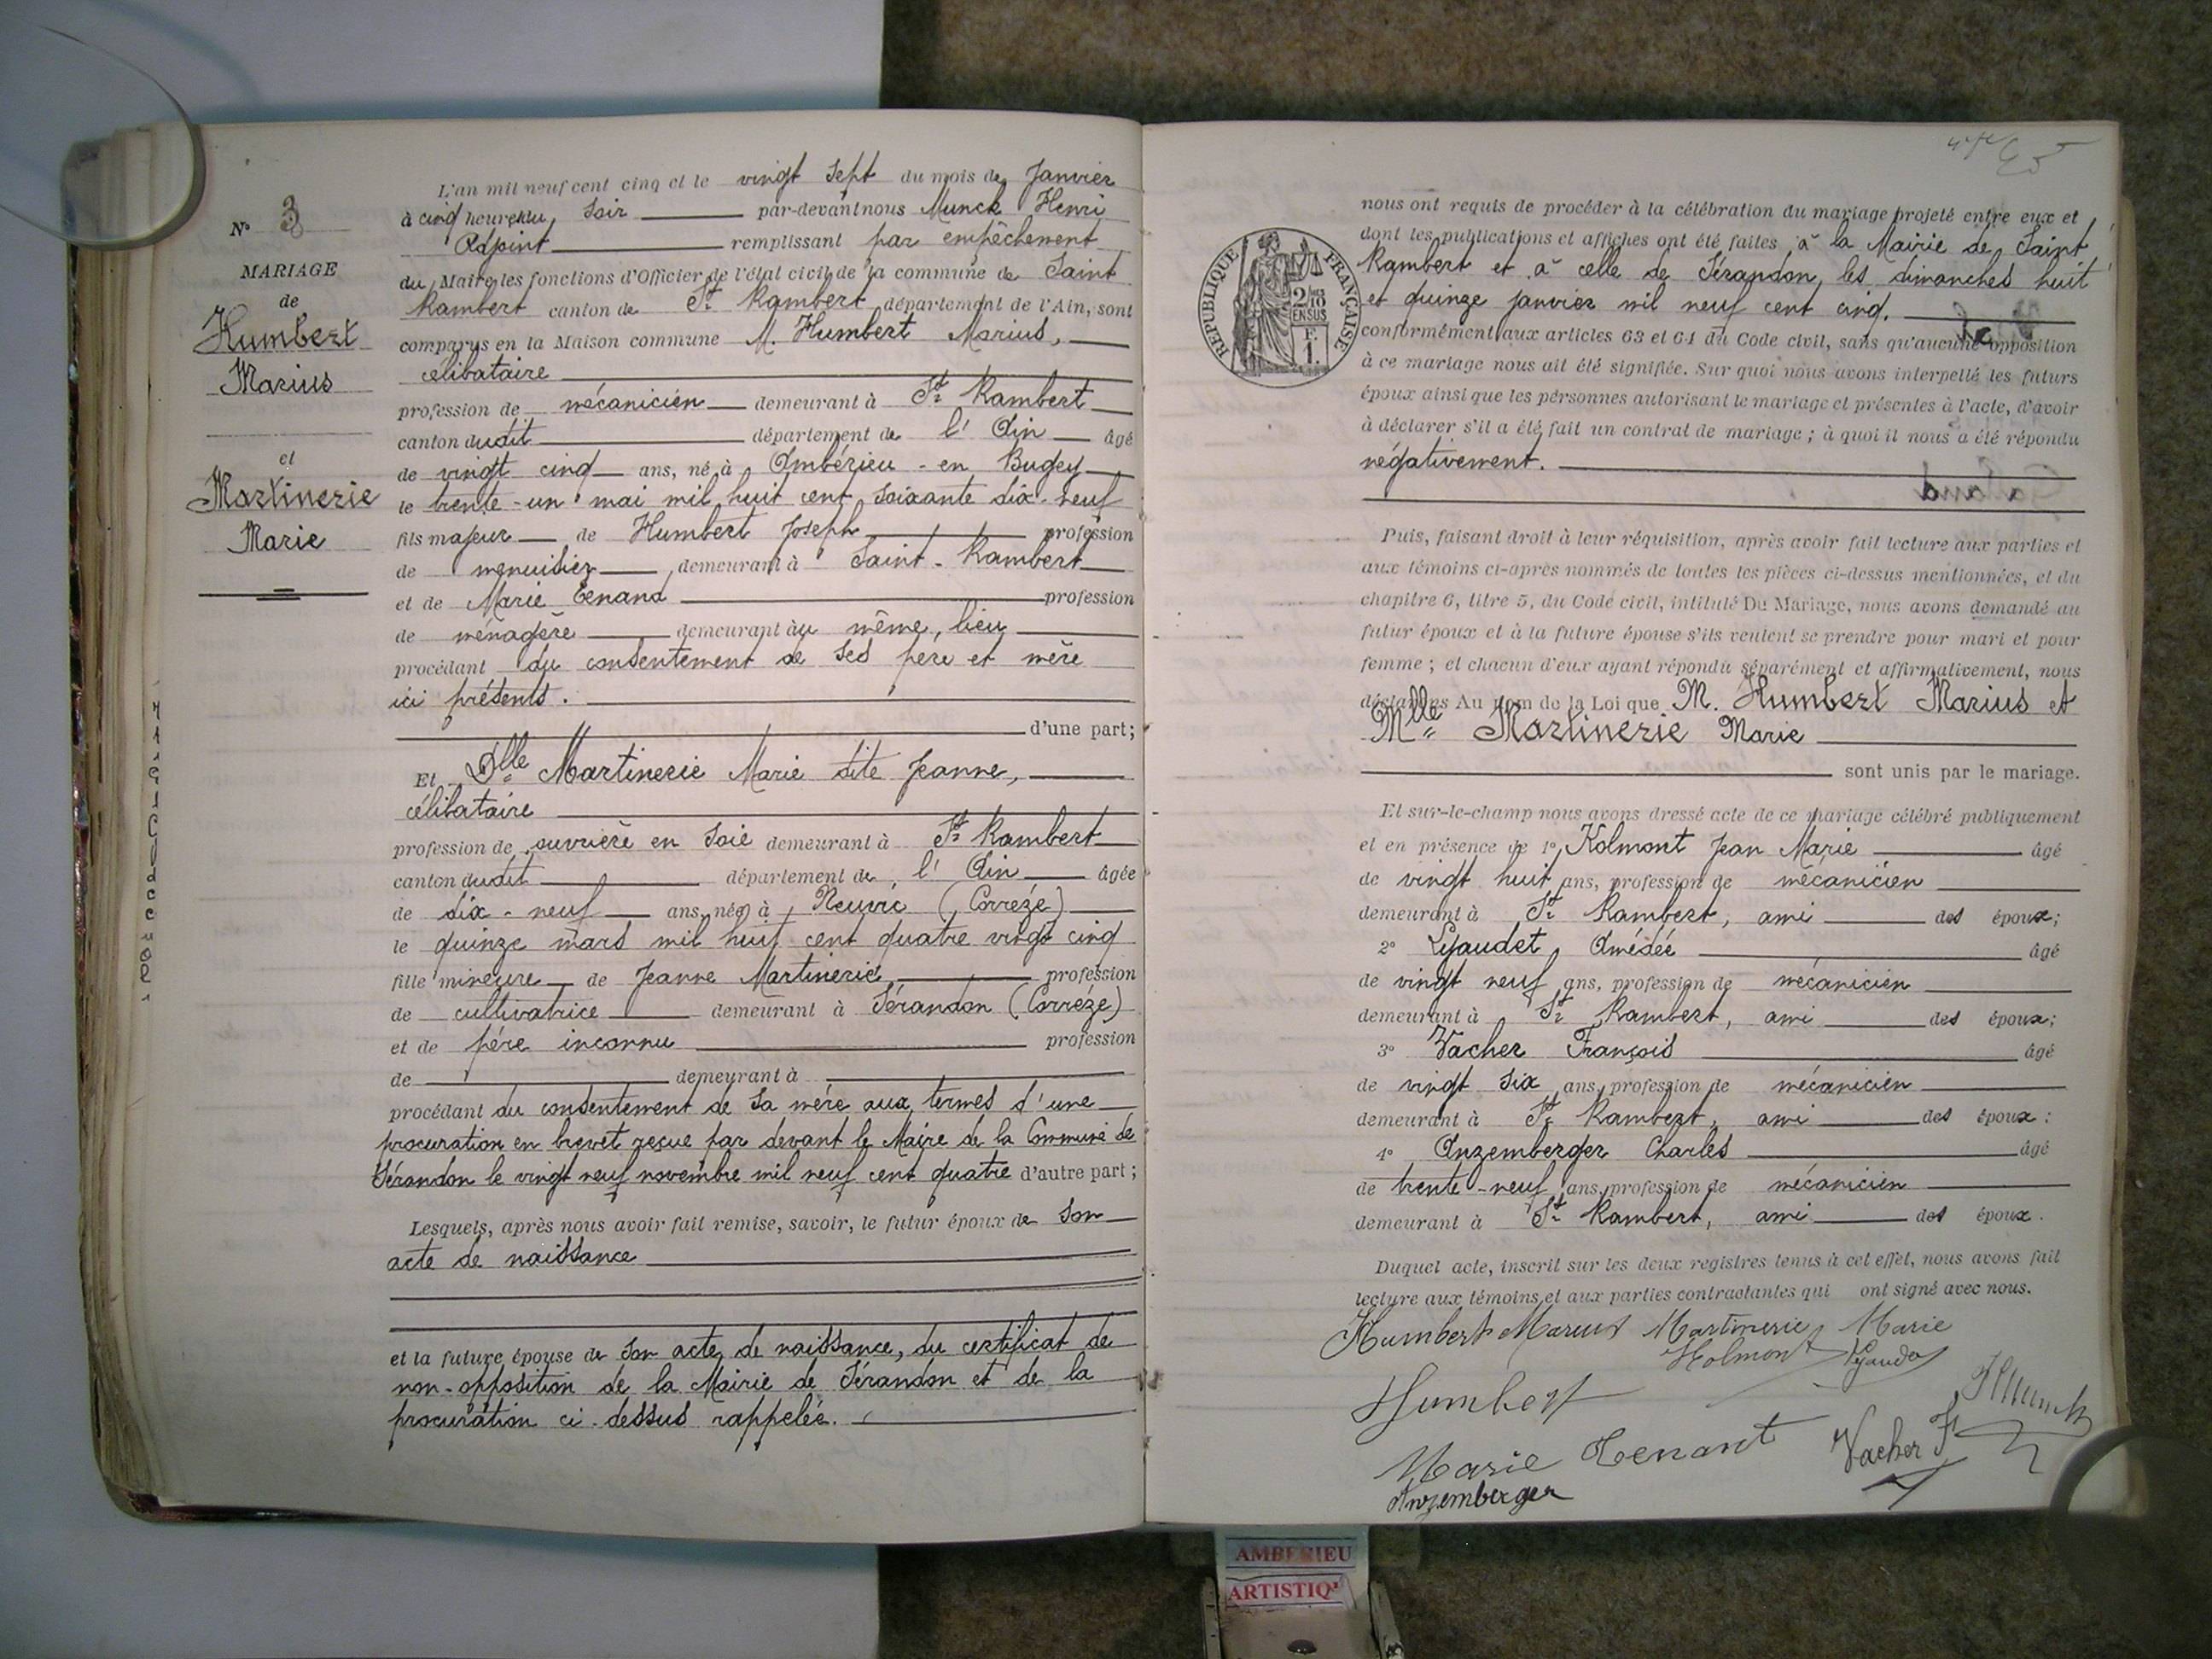 N° 3
MARIAGE
de
Humbert
Marius
et
Martinerie
Marie
L'an mil neuf cent cinq et le vingt sept du mois de Janvier
à cinq heures du soir par-devant nous Munck Henri
Adjoint remplissant par empêchement
du Maire les fonctions d'Officier de l'état civil de la commune de Saint
Rambert canton de St Rambert département de l'Ain, sont
comparus en la Maison commune M. Humbert Marius,
célibataire
profession de mécanicien demeurant à St Rambert
canton dudit département de l'Ain âgé
de vingt cinq ans, né à Ambérieu-en Bugey
le trente-un mai mil huit cent soixante dix-neuf
fils majeur de Humbert Joseph profession
de menuisier demeurant à Saint-Rambert
et de Marie Tenand profession
de ménagère demeurant au même lieu
procédant du consentement de ses père et mère
ici présents.
d'une part;
Et Dlle Martinerie Marie dite Jeanne,
célibataire
profession de ouvrière en soie demeurant à St Rambert
canton dudit département de l'Ain âgée
de dix-neuf ans, née à Neuvic (Corrèze)
le quinze mars mil huit cent quatre vingt cinq
fille mineure de Jeanne Martinerie profession
de cultivatrice demeurant à Sérandon (Corrèze)
et de père inconnu profession
de demeurant à
procédant du consentement de sa mère aux termes d'une
procuration en brevet reçue par devant le Maire de la Commune de
Sérandon le vingt neuf novembre mil neuf cent quatre d'autre part;
Lesquels, après nous avoir fait remise, savoir, le futur époux de son
acte de naissance
et la future épouse de son acte de naissance, du certificat de
non-opposition de la Mairie de Sérandon et de la
procuration ci-dessus rappelée.
nous ont requis de procéder à la célébration du mariage projeté entre eux et
dont les publications et affiches ont été faites à la Mairie de Saint
Rambert et à celle de Sérandon, les dimanches huit
et quinze janvier mil neuf cent cinq.
REPUBLIQUE FRANÇAISE
2/10 EN SUS
F. 1.
conformément aux articles 63 et 64 du Code civil, sans qu'aucune opposition
à ce mariage nous ait été signifiée. Sur quoi nous avons interpellé les futurs
époux ainsi que les personnes autorisant le mariage et présentes à l'acte, d'avoir
à déclarer s'il a été fait un contrat de mariage; à quoi il nous a été répondu
négativement.
Puis, faisant droit à leur réquisition, après avoir fait lecture aux parties et
aux témoins ci-après nommés de toutes les pièces ci-dessus mentionnées, et du
chapitre 6, titre 5, du Code civil, intitulé Du Mariage, nous avons demandé au
futur époux et à la future épouse s'ils veulent se prendre pour mari et pour
femme; et chacun d'eux ayant répondu séparément et affirmativement, nous
déclarons Au nom de la Loi que M. Humbert Marius et
Mlle Martinerie Marie
sont unis par le mariage.
Et sur-le-champ nous avons dressé acte de ce mariage célébré publiquement
et en présence de 1° Kolmont Jean Marie âgé
de vingt huit ans, profession de mécanicien
demeurant à St Rambert, ami des époux;
2° Lyaudet Amédée âgé
de vingt neuf ans, profession de mécanicien
demeurant à St Rambert, ami des époux;
3° Vacher François âgé
de vingt six ans, profession de mécanicien
demeurant à St Rambert, ami des époux:
4° Anzemberger Charles âgé
de trente-neuf ans, profession de mécanicien
demeurant à St Rambert, ami des époux.
Duquel acte, inscrit sur les deux registres tenus à cet effet, nous avons fait
lecture aux témoins et aux parties contractantes qui ont signé avec nous.
Humbert Marius Martinerie Marie
Kolmont Lyaudet
Humbert HMunck
Marie Tenant Vacher F
Anzemberger
AMBERIEU
ARTISTIQ